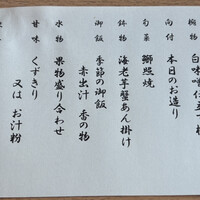 椀物 白味噌仕立て
向付 本日のお造り
旬菜 鰤照焼
鉢物 海老芋蟹あん掛け
御飯 季節の御飯
赤出汁 香の物
水物 果物盛り合わせ
甘味 くずきり
又は お汁粉